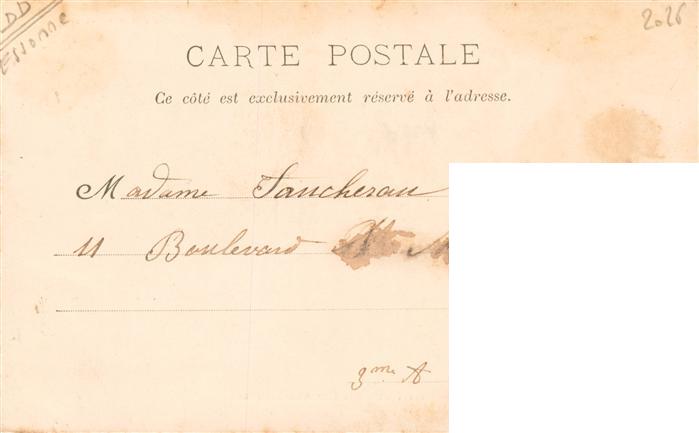 DD
Essonne
2026
CARTE POSTALE
Ce côté est exclusivement réservé à l'adresse.
Madame Faucherau
11 Boulevard
3me A